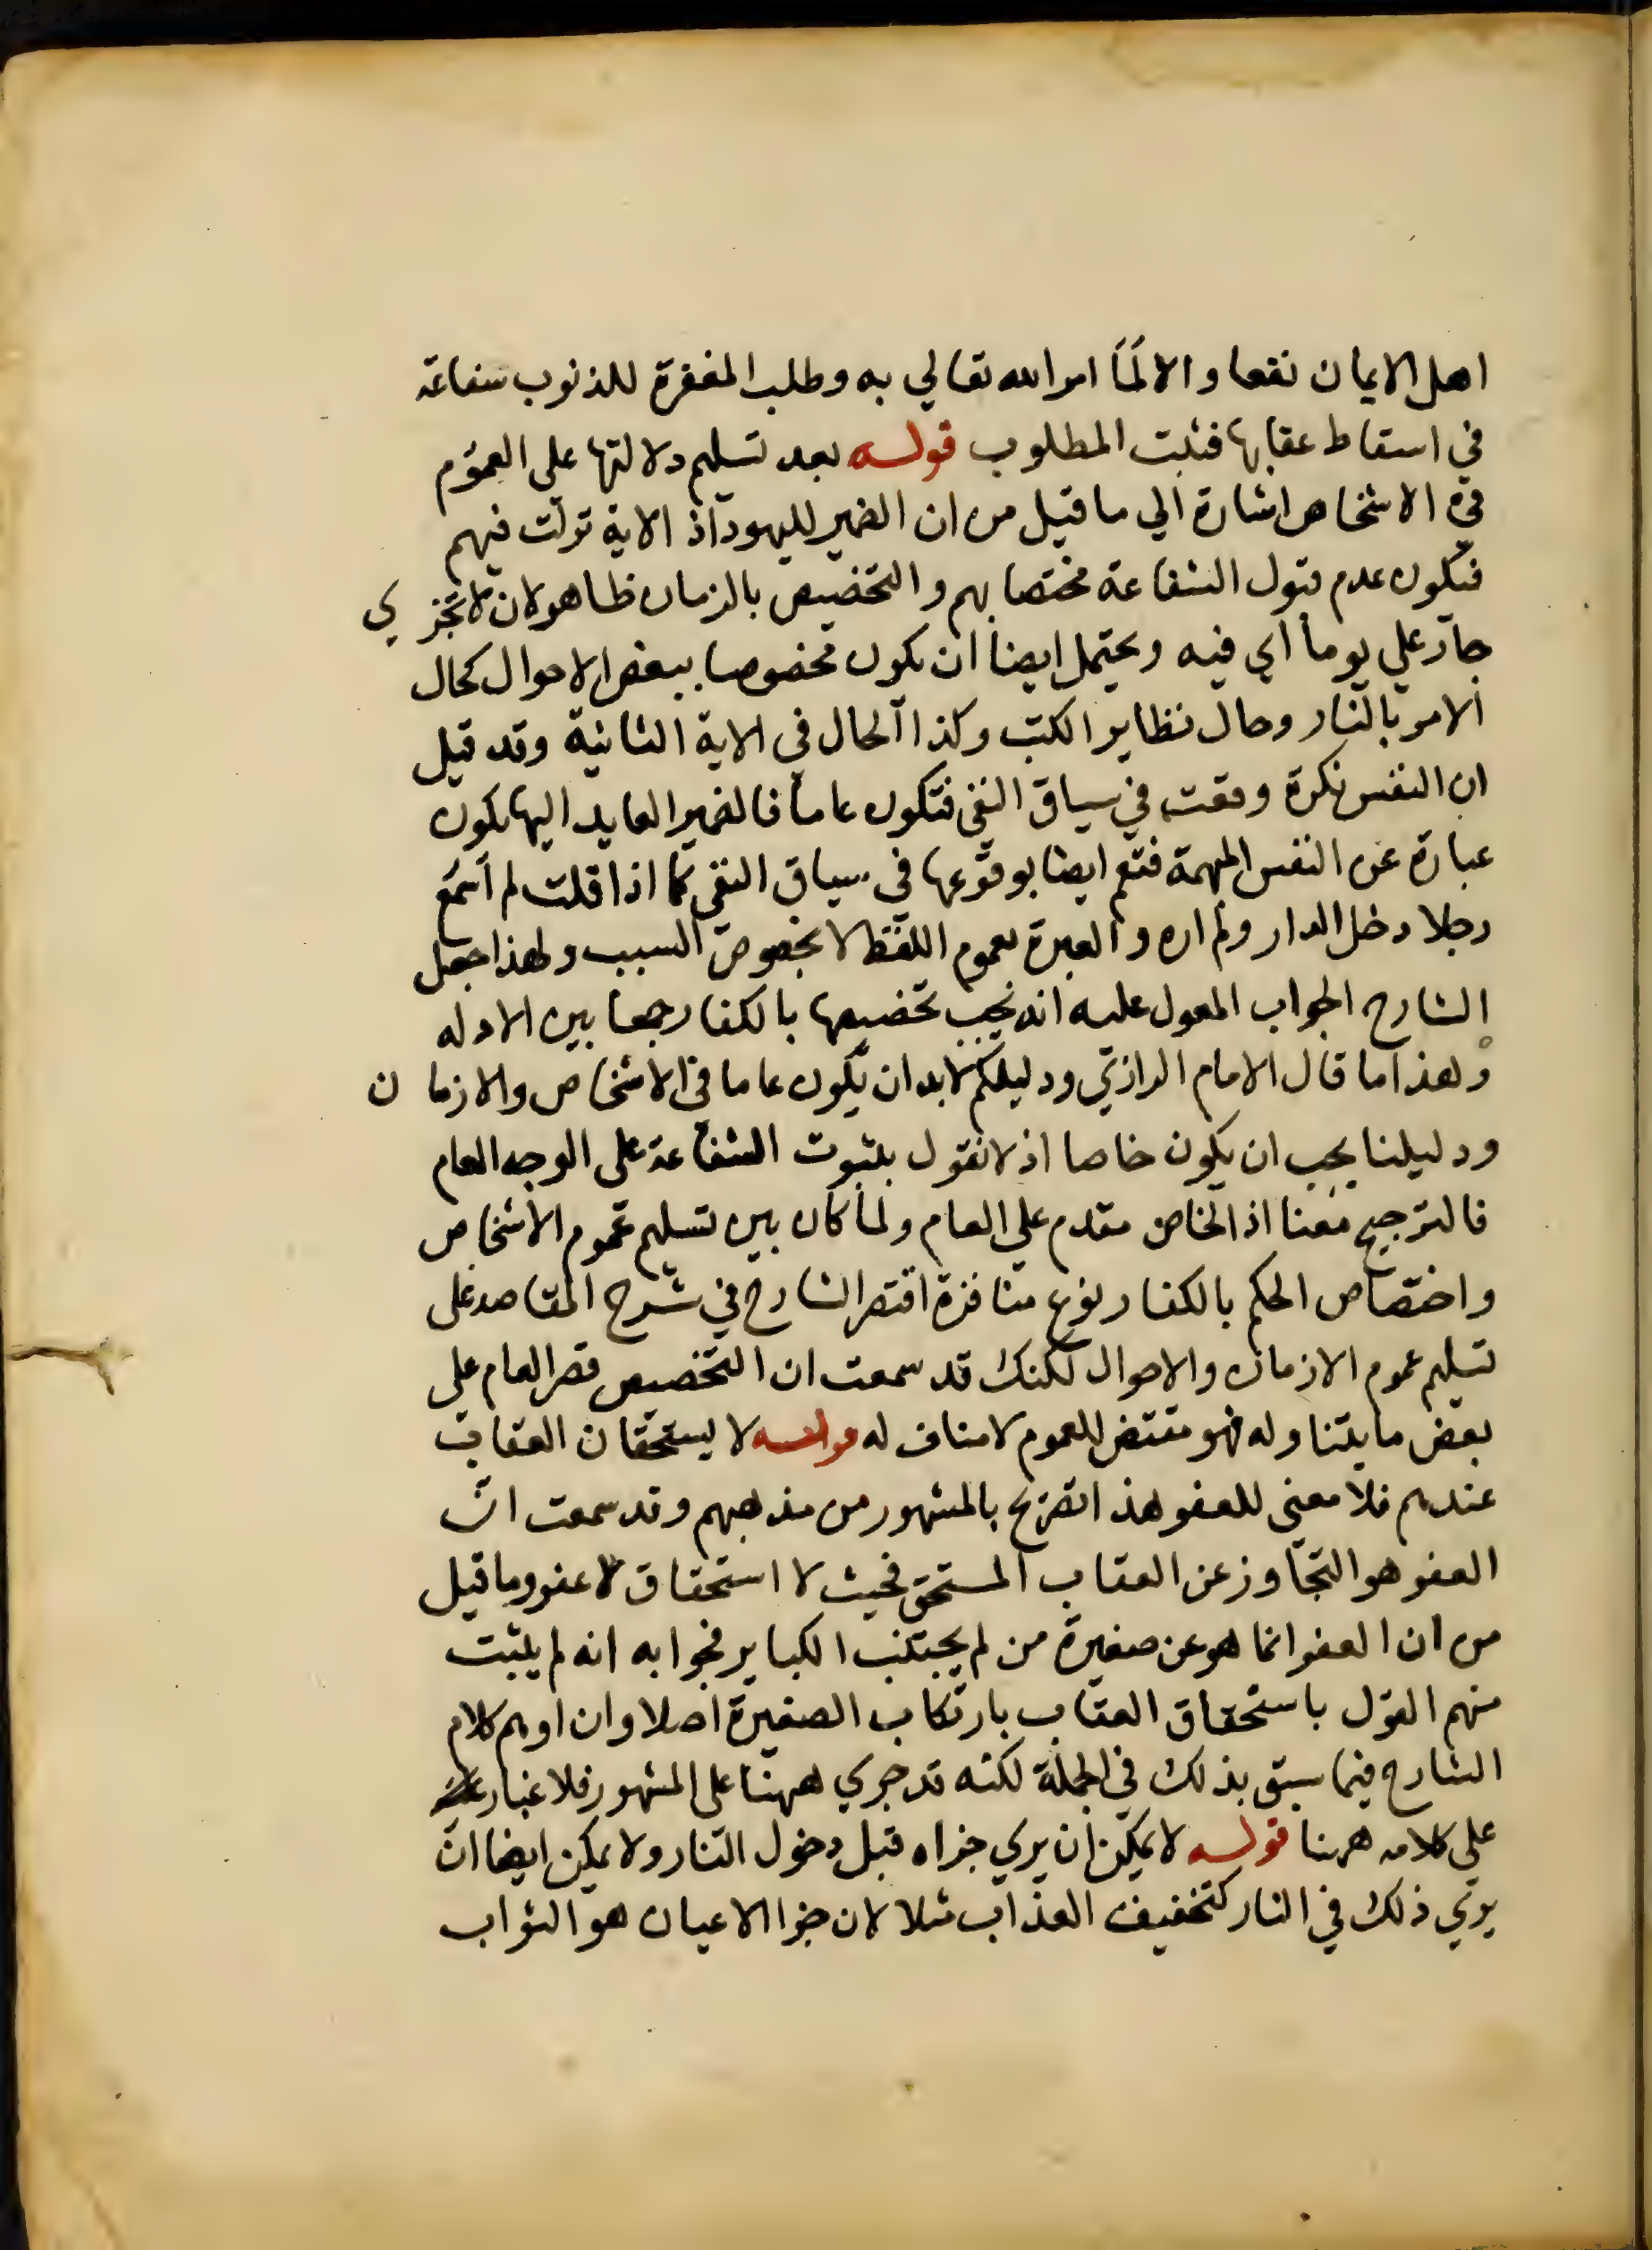 اهل الايمان نفعا والا لَمَا امر الله تعالي به وطلب المغفرة للذنوب شفاعة
في اسقاط عقابها فثبت المطلوب قوله بعد تسليم دلالتها على العموم
في الاشخاص اشارة الي ما قيل من ان الضمير لليهود اذ الاية نزلت فيهم
فيكون عدم قبول الشفاعة مختصا بهم والتخصيص بالزمان ظاهر لان لا تجزي
جار علي يوما اي فيه ويحتمل ايضا ان يكون مخصوصا ببعض الاحوال كحال
الامر بالنار وحال تطاير الكتب وكذا الحال في الاية الثانية وقد قيل
ان النفس نكرة وقعت في سياق النفي فتكون عاما فالضمير العايد اليها يكون
عبارة عن النفس المبهمة فتعم ايضا بوقوعها في سياق النفي كما اذا قلت لم اسمع
رجلا دخل الدار ولم اره والعبرة لعموم اللفظ لا بخصوص السبب ولهذا جعل
الشارح الجواب المعول عليه انه يجب تخصيصها بالكفار جمعا بين الادله
ولهذا ما قال الامام الرازي ودليلكم لابد ان يكون عاما في الاشخاص والازمان
ودليلنا يجب ان يكون خاصا اذ لا نقول بثبوت الشفاعة على الوجه العام
فالترجيح معنا اذ الخاص مقدم علي العام ولما كان بين تسليم عموم الاشخاص
واختصاص الحكم بالكفار نوع منافرة اقتصر الشارح في شرح المقاصد على
تسليم عموم الازمان والاحوال لكنك قد سمعت ان التخصيص قصر العام علي
بعض ما يتناوله فهو مقتض للعموم لا مناف له قوله لا يستحقان العقاب
عندهم فلا معنى للعفو هذا تصريح بالمشهور من مذهبهم وقد سمعت ان
العفو هو التجاوز عن العقاب المستحق فحيث لا استحقاق لا عفو وما قيل
من ان العفو انما هو عن صغيرة من لم يجتنب الكباير فجوابه انه لم يثبت
منهم القول باستحقاق العقاب بارتكاب الصغيرة اصلا وان اوهم كلام
الشارح فيما سبق بذلك في الجملة لكنه قد جري ههنا على المشهور فلا غبار
علي كلامه ههنا قوله لا يمكن ان يري جزاه قبل دخول النار ولا يمكن ايضا ان
يري ذلك في النار كتخفيف العذاب مثلا لان جزا الاعيان هو الثواب